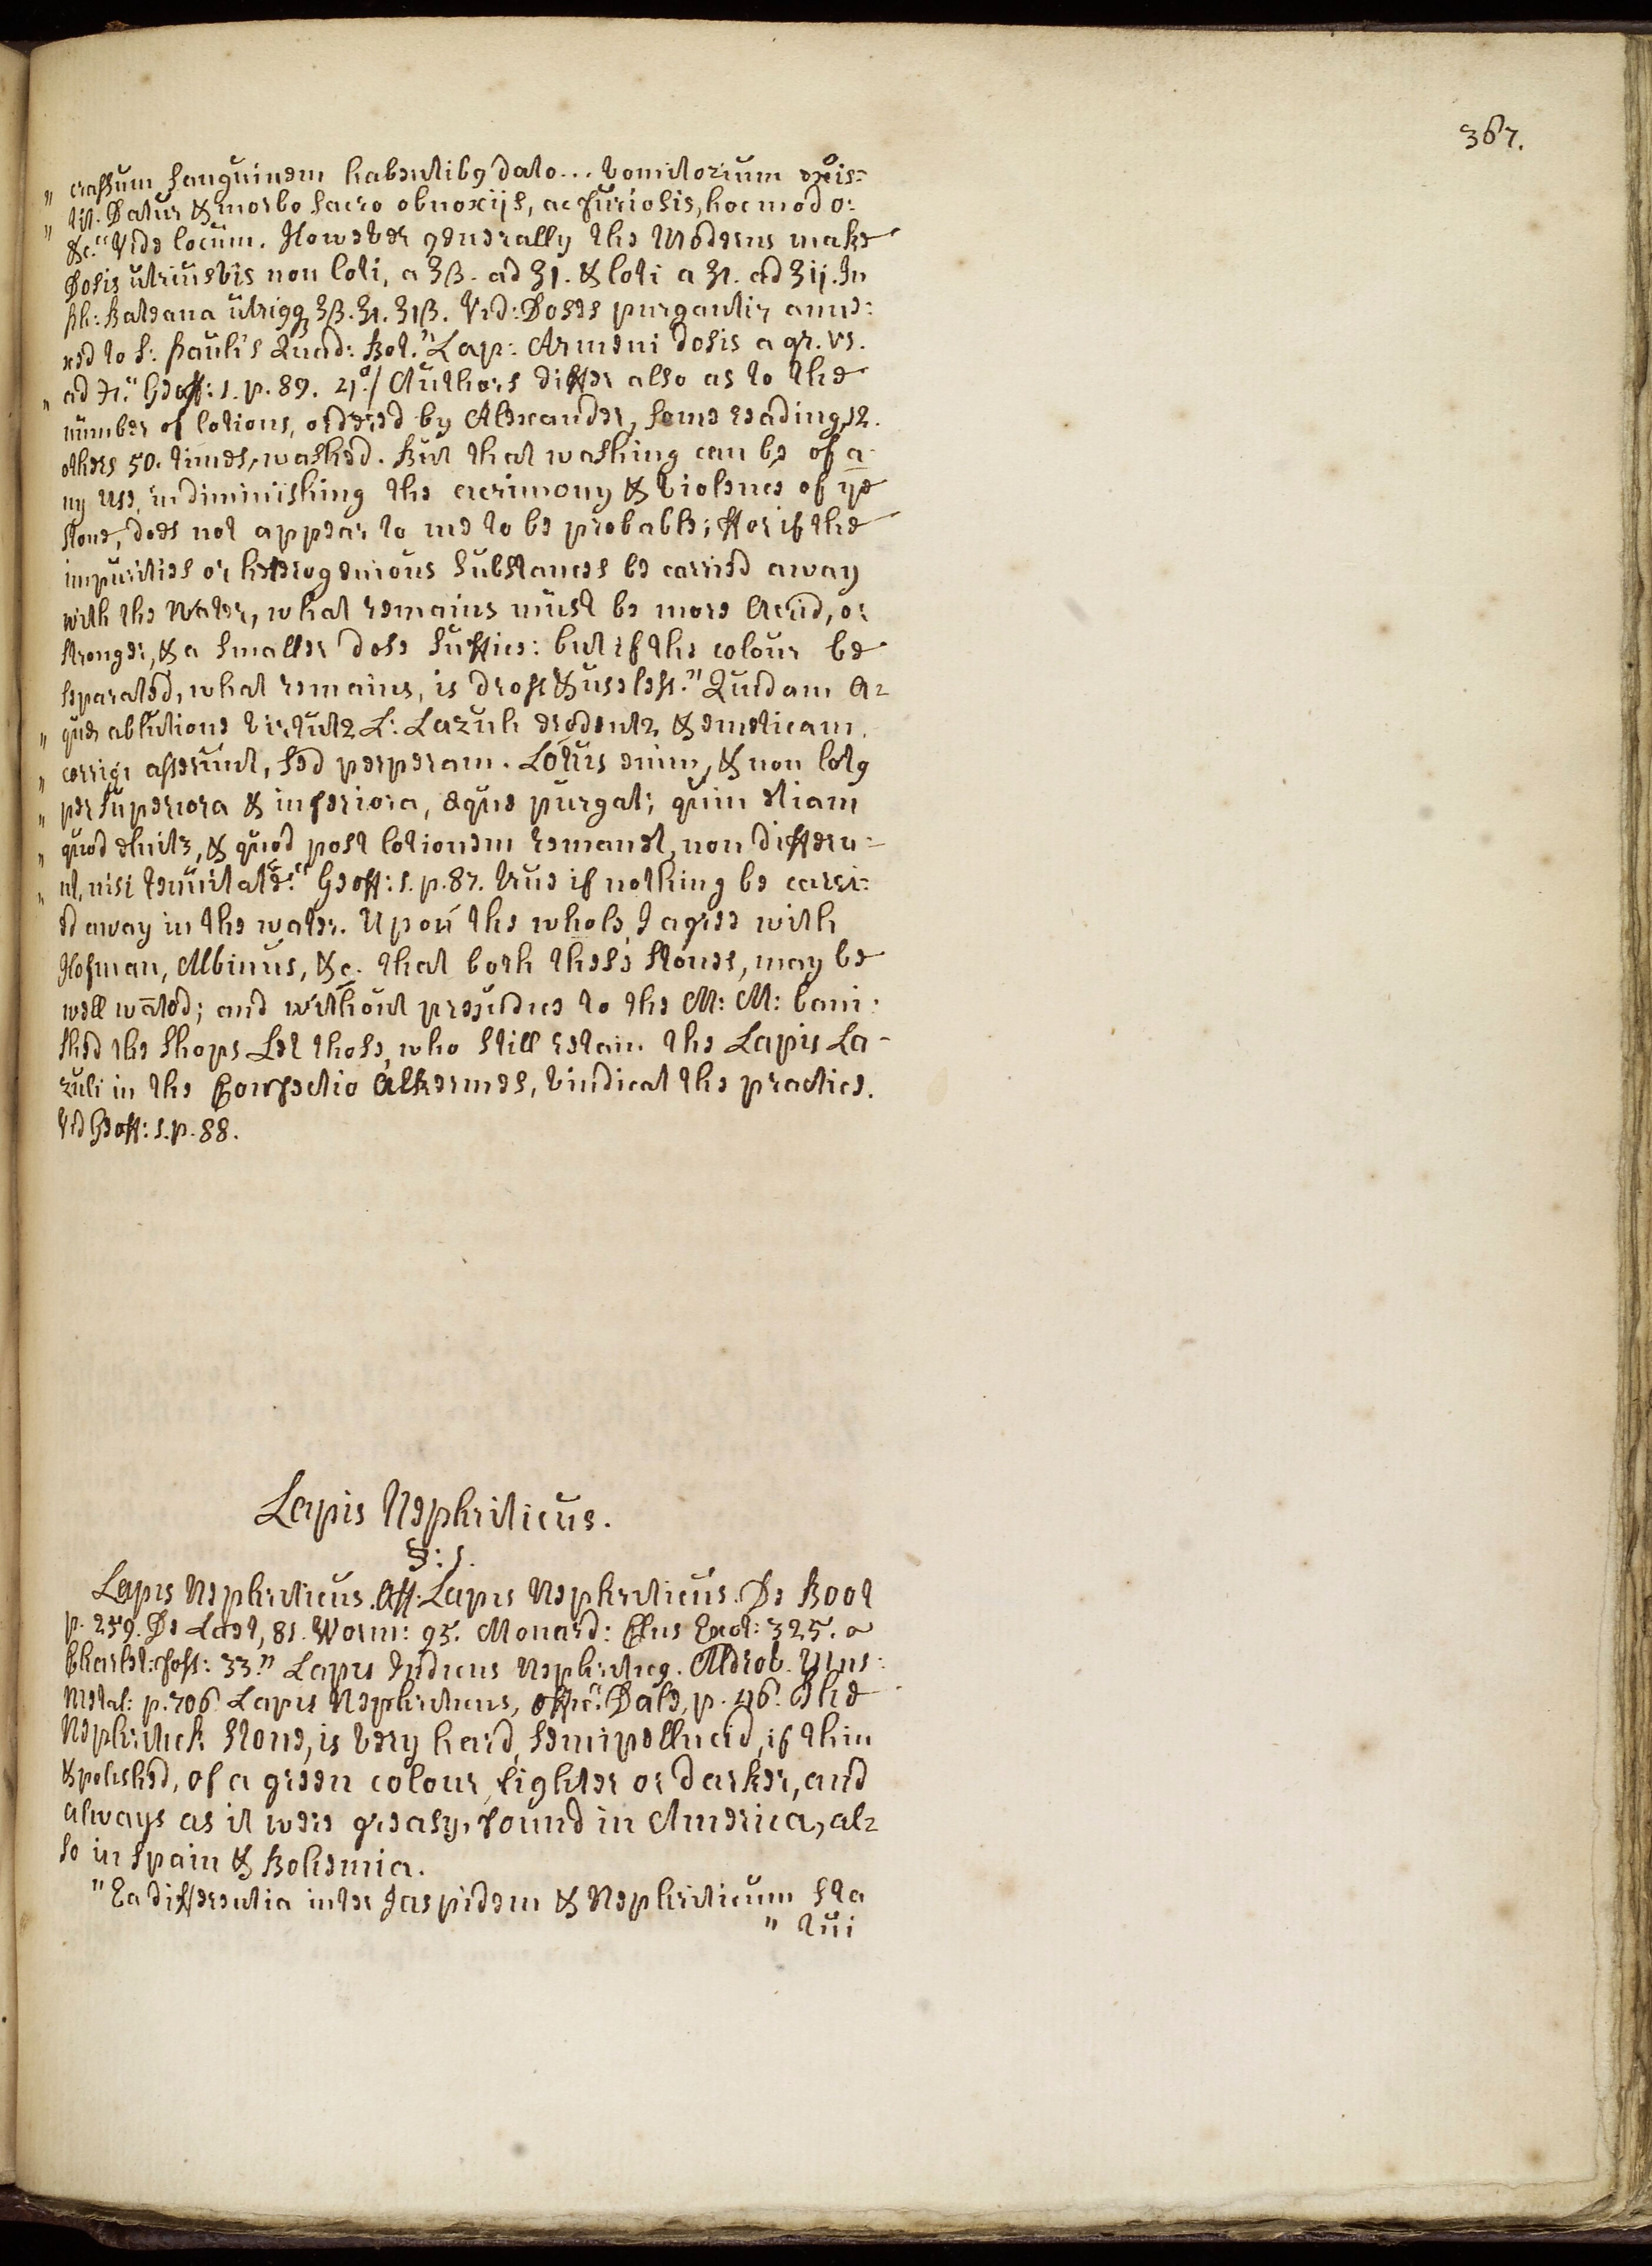 367.
" crassum sanguinem habentibq dato... vomitorium exis=
" tit. Datur & morbo sacro obnoxijs, ac furiosis, hoc modo:
&c." Vide locum. However generally the Moderns make
Dosis utriusvis non loti, a ʒß. ad ʒ1. & loti a ʒ1. ad ʒij. In
Ph: Bateana utrigq ʒß. ʒ1. ʒ1ß. Vid: Doses purgantiũ anne:
xed to S: Pauli's Quad: Bot. "Lap: Armeni dosis a gr. vs.
" ad ℈1." Geoff: 1. p. 89. 4º/ Authors differ also as to the
number of lotions, ordered by Alexander, some reading 12.
others 50. times, washed. But that washing can be of a-
ny use, in diminishing the acrimony & violence of ye
stone, does not appear to me to be probable; ffor if the
impurities or heterogenious substances be carried away
with the Water, what remains must be more Acrid, or
stronger, & a smaller dose suffice: but if the colour be
separated, what remains, is dross & useless. "Quidam A=
" que ablutione virtutẽ L: Lazuli erodentẽ & emeticam,
" corrigi asserunt, sed perperam. Lotus enim, & non lotq
" per superiora & inferiora, æque purgat; quin etiam
" quod eluitr, & quod post lotionem remanet, non differu=
" nt, nisi tenuitate." Geoff: 1. p. 87. true if nothing be carri=
ed away in the water. Upon the whole, I agree with
Hofman, Albinus, &c. that both these stones, may be
well wãted; and without prejudice to the M: M: bani:
shed the shops Let those, who still retain the Lapis La-
zuli in the Confectio Alkermes, vindicat the practice.
Vid Geoff: 1. p. 88.
Lapis Nephriticus.
§: 1.
Lapis Nephriticus. Off: Lapis Nephriticus. De Boot
p. 259. De Laet, 81. Worm: 95. Monard: Clus Exot: 325. a
Charlet: foss: 33." Lapis Indicus Nephriticq. Aldrov. Mus:
Metal: p. 706 Lapis Nephriticus, offic." Dale, p. 46. The
Nephritick Stone, is very hard, semipellucid, if thin
& polished, of a green colour, lighter or darker, and
always as it were greasy, found in America, al=
so in Spain & Bohemia.
" Ea differentia inter Jaspidem & Nephriticum sta
" tui